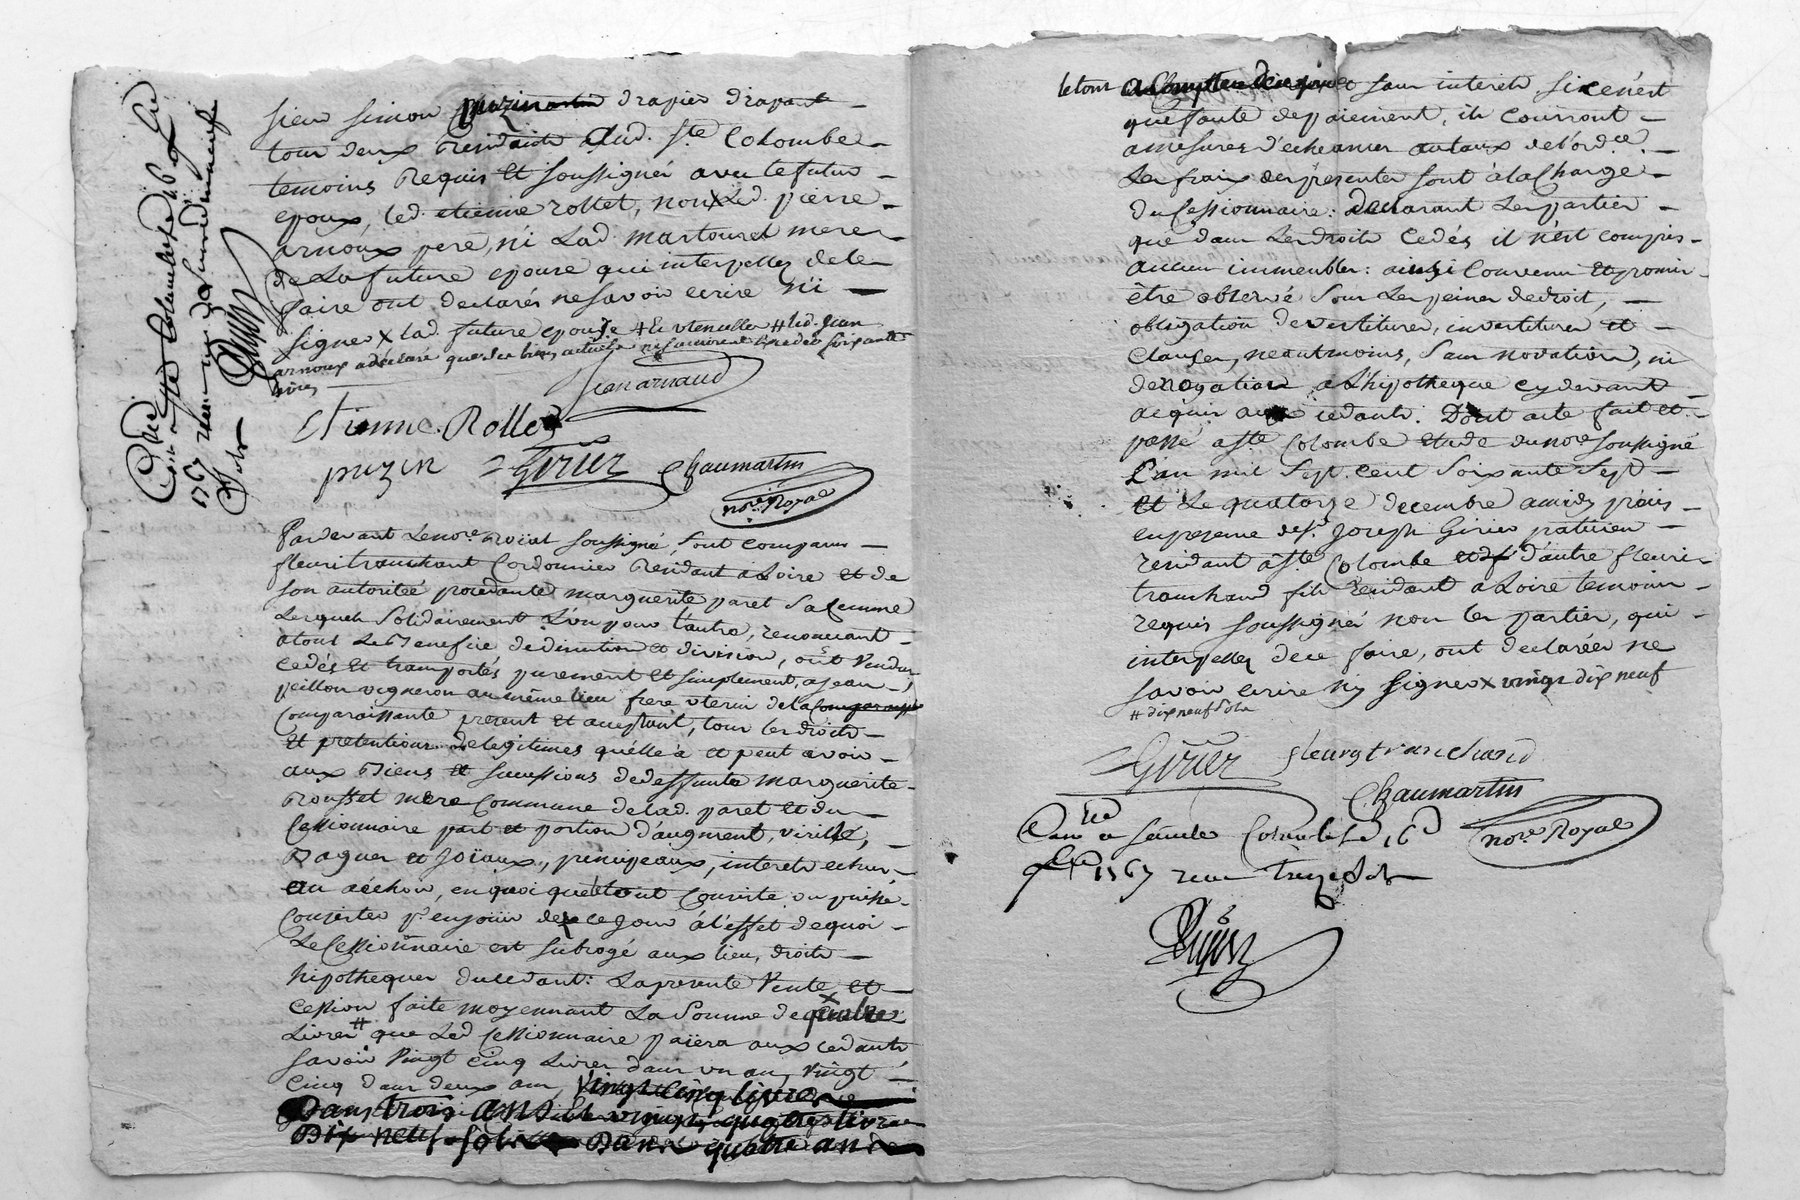 sieur simon puzin drapier drapant
tous deux residants aud. Ste Colombe
temoins requis et soussignés avec le futur
epoux, led. etienne rollet, non X led. pierre
arnoux pere, ni lad. martouret mere
de la future epouse qui interpellés de le
faire ont declarés ne savoir ecrire ni
signer X lad. future epouse # et utencilles # led. Jean
arnoux a declaré que ses biens actuels
livres
Jean arnaud
Etienne Rollet
puzin Girier Chaumartin
nore. Royal
Pardevant Le nore. roïal soussigné, sont comparus
fleuri tranchant Cordonnier residant a Loire et de
son autoritée procedante marguerite paret sa femme
Lesquels solidairement L'un pour l'autre, renonçant
a tout Le Benefice de division, ont vendus
cedés et transportés purement et simplement, a jean
peillon vigneron au même lieu frere uterin de la
Comparaissante present et acceptant, tous les droits
et pretentions de legitimes qu'elle à et peut avoir
aux Biens et successions de deffunte marguerite
rousset mere Commune de lad. paret et du
Cessionnaire part et portion d'augment, virille,
Bagues et Joïaux, principeaux, interets echus
ou à échoir, en quoi que le tout Consiste ou puisse
Consister pr. en jouir dez ce jour à l'effet de quoi
Le Cessionnaire est subrogé aux lieu, droits
hipotheques du cedant: La presente Vente et
cession faite moyennant La Somme de
Livres # que Led Cessionnaire païera aux cedants
savoir vingt cinq Livres dans un an, vingt
cinq dans deux ans, vingt cinq livres
Dans trois ans et vingt quatres livres
Dix neuf sols Dans quatre ans
le tout sans interets si ce n'est
que faute de paiement, ils courront
a mesures d'echeances au taux de l'ordce.
Les frais des presentes sont à la Charge
du Cessionnaire: declarant Les parties
que dans Les droits Cedés il n'est compris
aucun immeubles: ainsi Convenu et promis
être observé sous Les peines de droit,
obligation devestitures, investitures et
Clauses, neantmoins, sans novation, ni
derogation a L'hipotheque cy devant
acquis aux cedants. Dont acte fait et
passé a Ste Colombe etude du nore. soussigné
L'an mil sept cent soixante sept
et Le quatorze decembre amidy précis
en presence de sr. Joseph Girier
residant a Ste Colombe et d'autre fleuri
tranchand fils residant a Loire temoins
requis soussignés non les parties, qui
interpellés de ce faire, ont declarées ne
savoir ecrire ny signer X vingt dix neuf
# dix neuf sols
Girier fleury tranchand
Chaumartin
nore. Royal
a Sainte Colombe Le 16 d
1767 reçu treize sols
Ste Colombe Le 16
1767 reçu